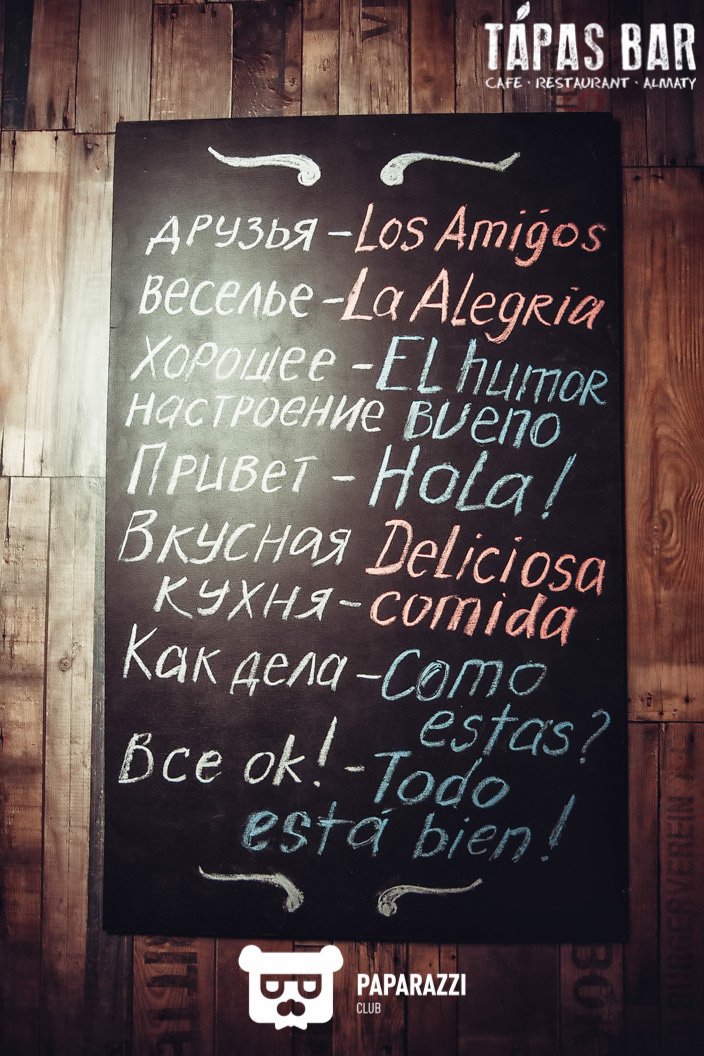 TÁPAS BAR
CAFE · RESTAURANT · ALMATY
друзья – Los Amigos
веселье – La Alegria
Хорошее – El humor
настроение Bueno
Привет – Hola!
Вкусная Deliciosa
кухня – comida
Как дела – Como
estas?
Все ок! – Todo
está bien!
PAPARAZZI
CLUB